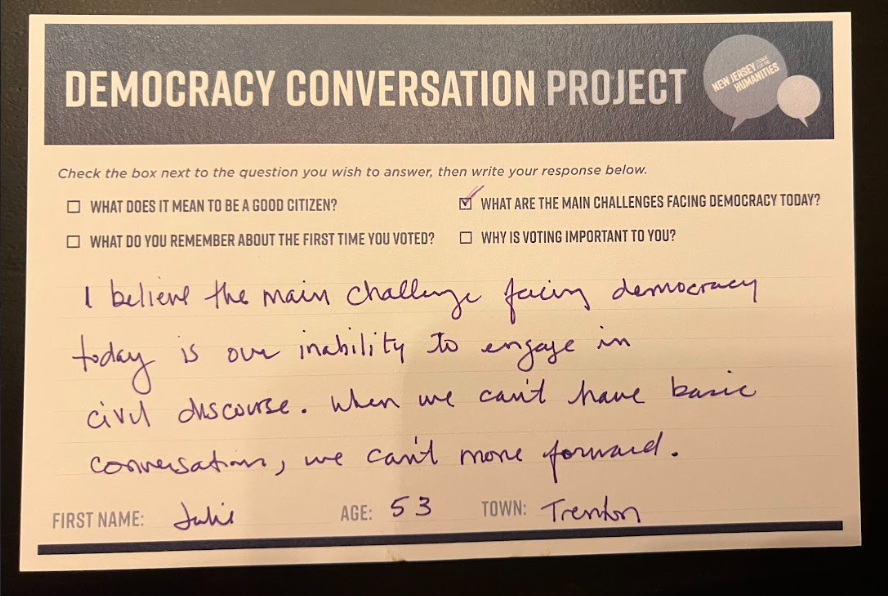 DEMOCRACY CONVERSATION PROJECT
NEW JERSEY
HUMANITIES
Check the box next to the question you wish to answer, then write your response below.
WHAT DOES IT MEAN TO BE A GOOD CITIZEN?
WHAT ARE THE MAIN CHALLENGES FACING DEMOCRACY TODAY?
WHAT DO YOU REMEMBER ABOUT THE FIRST TIME YOU VOTED?
WHY IS VOTING IMPORTANT TO YOU?
I believe the main challenge facing democracy
today is our inability to engage in
civil discourse. When we can't have basic
conversations, we can't move forward.
FIRST NAME: Julie AGE: 53 TOWN: Trenton